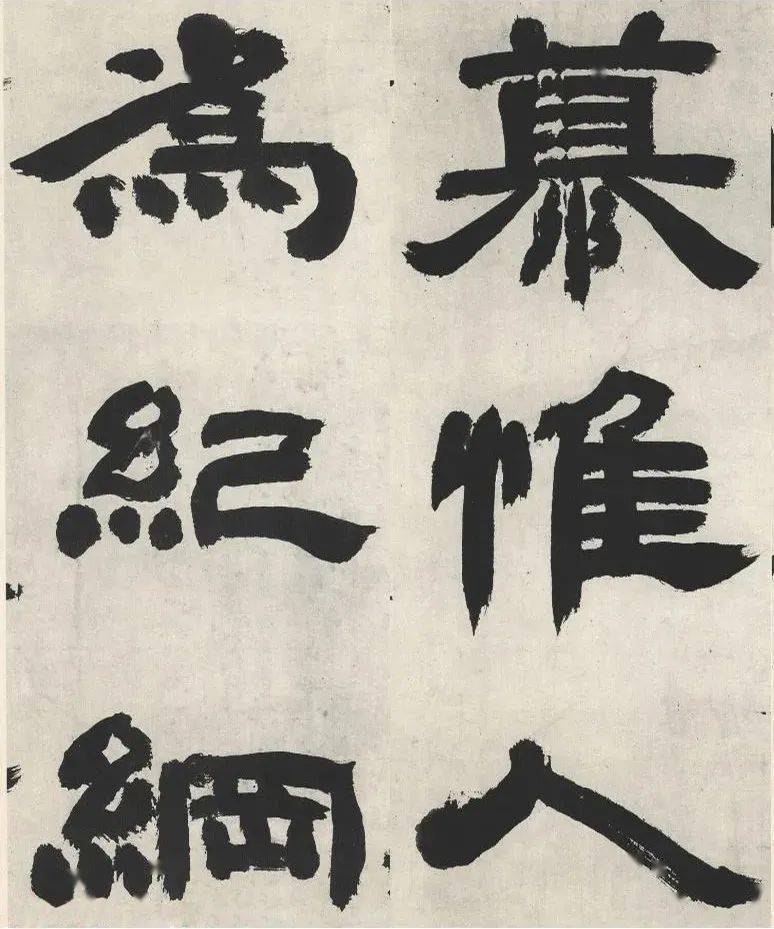 慕惟人
為紀綱